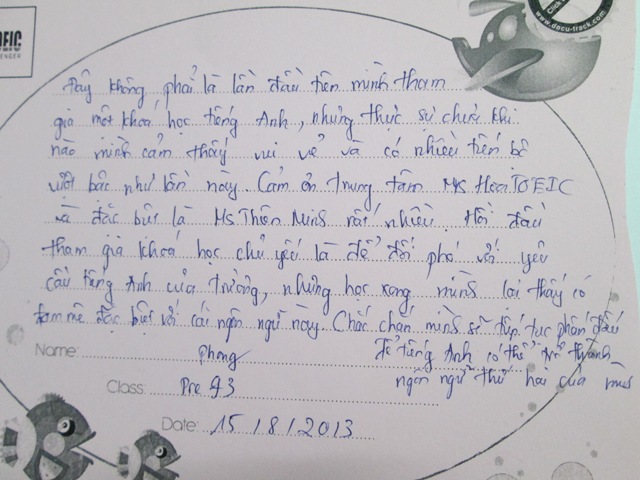 OEIC
ENGER
Click
www.docu-track.com
Đây không phải là lần đầu tiên mình tham
gia một khoá học tiếng Anh, nhưng thực sự chưa khi
nào mình cảm thấy vui vẻ và có nhiều tiến bộ
vượt bậc như lần này. Cảm ơn trung tâm Ms Hoa TOEIC
và đặc biệt là Ms Thiên Minh rất nhiều. Hồi đầu
tham gia khoá học chủ yếu là để đối phó với yêu
cầu tiếng Anh của trường, nhưng học xong mình lại thấy có
đam mê đặc biệt với cái ngôn ngữ này. Chắc chắn mình sẽ tiếp tục phấn đấu
để tiếng Anh có thể trở thành
ngôn ngữ thứ hai của mình
Name: Phong
Class: Pre 93
Date: 15/8/2013